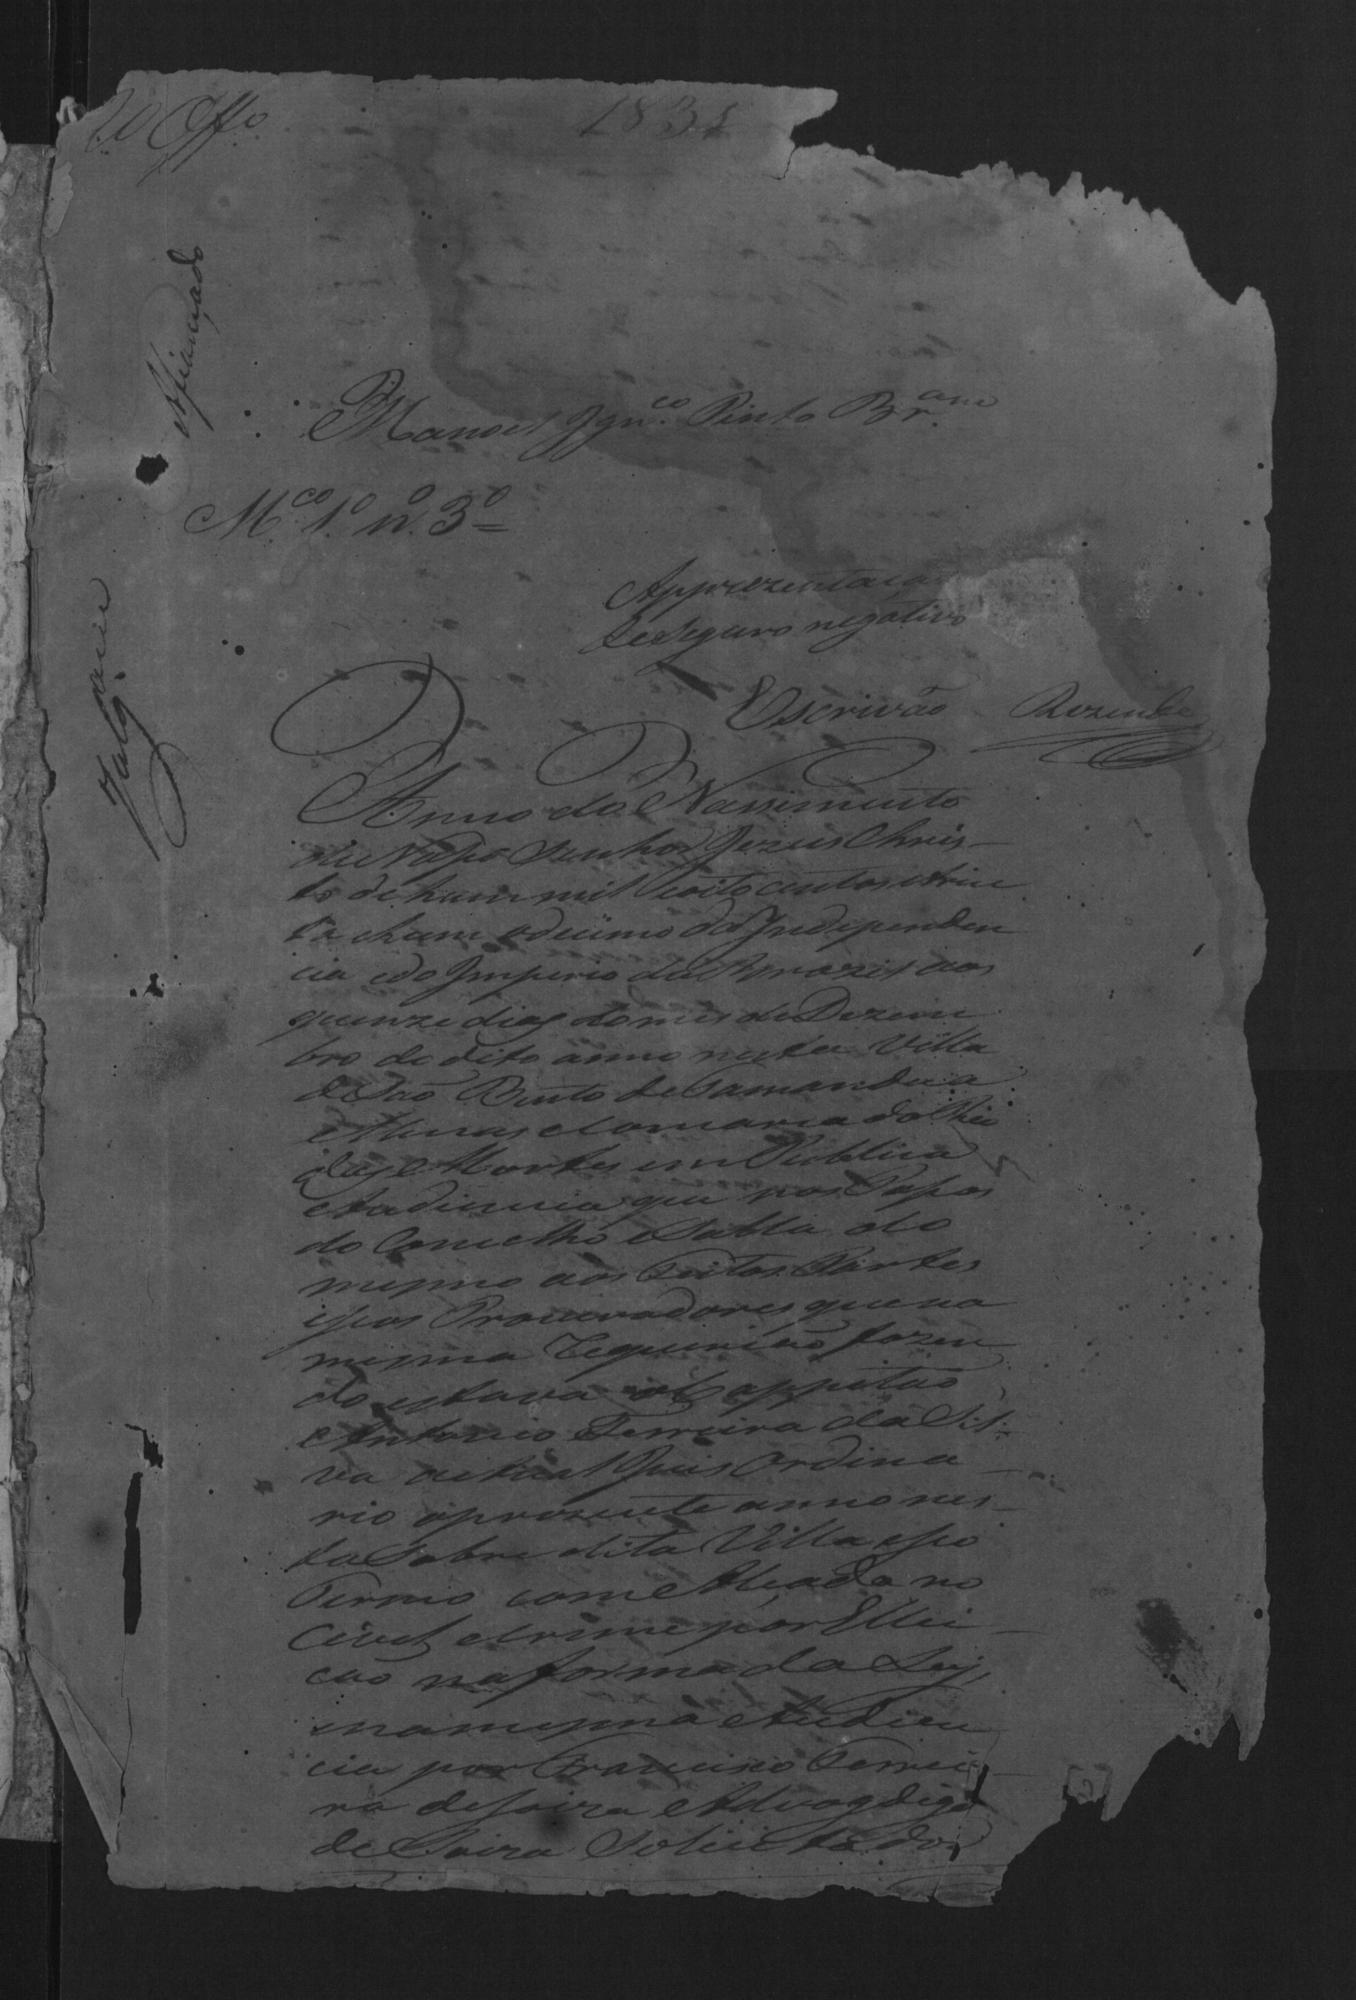 1831
Afiançado
Manoel Ign.co Pinto Br.
M.co 1.o n.o 3.o
Apprezentaçaõ
de seguro negativo
Escrivaõ Rezende
Anno do Nassimento
de Nosso Senhor Jezus Chris-
to de hum mil e oito centos e trin
ta e hum e decimo da Independen
cia e do Imperio do Brazil aos
quinze dias do mes de Dezem
bro do dito anno nesta Villa
de Saõ Bento de Tamandua
Minas e Comarca do Rio
das Mortes em Publica
Audiencia que nos Passos
do Concelho e Salla do
mesmo aos Feitos Partes
e seos Procuradores que na
mesma requeriaõ fazen
do estava o Cappitaõ
Antonio Ferreira da Sil-
va actual Juis Ordina
rio o prezente anno nes-
ta Sobre dita Villa e seo
Termo com Alçada no
Civel e crime por Ellei-
caõ na forma da Ley,
e na mesma Audien
cia por Francisco Ferrei-
ra de
de Solicitador